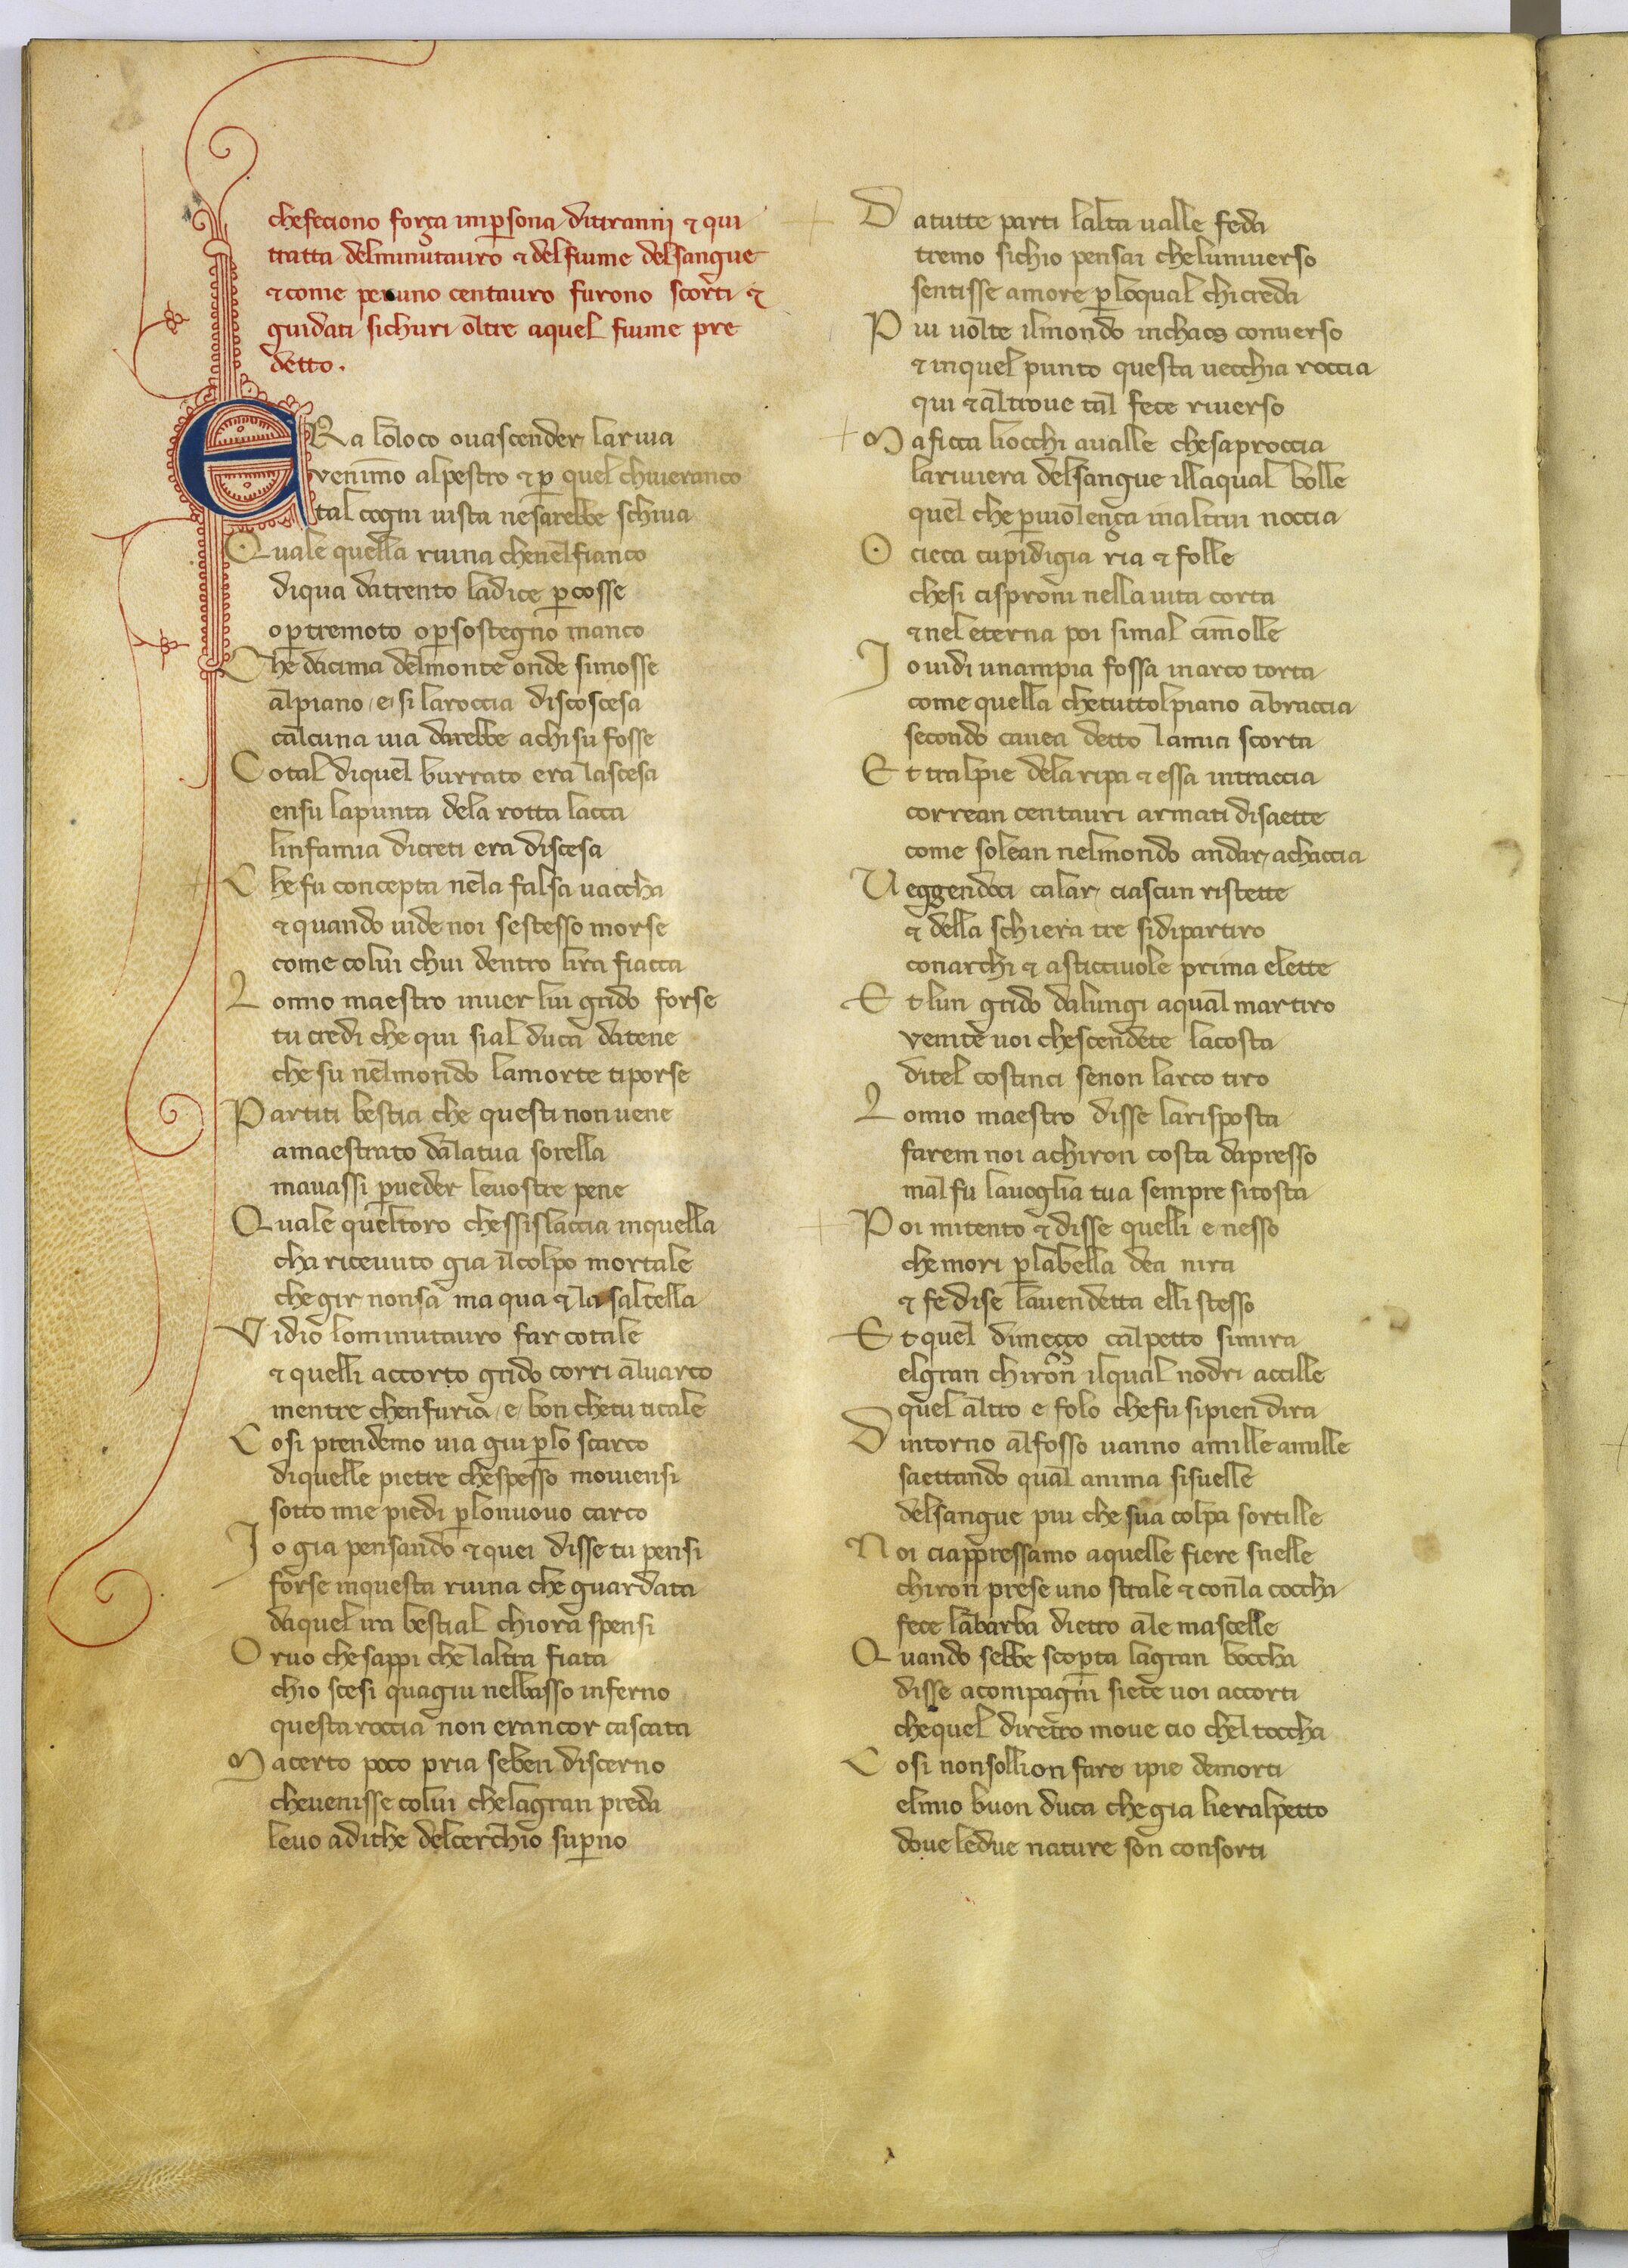 chefeciono força inp̄sona ditiranni ⁊ qui
tratta delminutauro ⁊ delfiume delsangue
⁊ come peruno centauro furono scorti ⁊
guidati sichuri oltre aquel fiume pre
detto.
ERa loloco ouascender lariua
venimo alpestro ⁊ p̄ quel chiueranco
tal cogni uista nesarebbe schiua
Quale quella ruina chenelfianco
diqua datrento ladice p̄cosse
op̄tremoto op̄sostegno manco
Che dacima delmonte onde simosse
alpiano e si laroccia discoscesa
calcuna uia darebbe achi su fosse
Cotal diquel burrato era lascesa
ensu lapunta dela rotta lacca
linfamia dicreti era discesa
Che fu concepta nela falsa uaccha
⁊ quando uide noi sestesso morse
come colui chui dentro lira fiacca
Lomio maestro inuer lui grido forse
tu credi che qui sial duca datene
che su nelmondo lamorte tiporse
Partiti bestia che questi non uene
amaestrato dalatua sorella
mauassi p̄ueder leuostre pene
Quale queltoro chessislaccia inquella
cha riceuuto gia ilcolpo mortale
chegir nonsa ma qua ⁊ la saltella
Vidio lominutauro far cotale
⁊ quelli accorto grido corri aluarco
mentre chenfuria e bon chetu ticale
Cosi prendemo uia giu p̄lo scarco
diquelle pietre chespesso mouiensi
sotto mie piedi p̄lonuouo carco
Io gia pensando ⁊ quei disse tu pensi
forse inquesta ruina che guardata
daquel ira bestial chiora spensi
Oruo chesappi che laltra fiata
chio scesi quagiu nelbasso inferno
questaroccia non erancor cascata
Macerto poco pria seben discerno
cheuenisse colui chelagran preda
leuo adithe delcerchio sup̄no
Datutte parti lalta ualle feda
tremo sichio pensai cheluniuerso
sentisse amore p̄loqual chicreda
Piu uolte ilmondo inchaos conuerso
⁊ inquel punto questa uecchia roccia
qui ⁊ altroue tal fece riuerso
Maficca liocchi aualle chesaproccia
lariuiera delsangue illaqual bolle
quel che p̄uiolença inaltrui noccia
O cieca cupidigia ria ⁊ folle
chesi cisproni nella uita corta
⁊ nel eterna poi simal cimolle
Io uidi unampia fossa inarco torta
come quella chetuttolpiano abraccia
secondo cauea detto lamia scorta
Et tralpie dela ripa ⁊ essa intraccia
correan centauri armati disaette
come solean nelmondo andar achaccia
Veggendoci calar ciascun ristette
⁊ della schiera tre sidipartiro
conarchi ⁊ asticciuole prima elette
Et lun grido dalungi aqual martiro
venite uoi chescendete lacosta
ditel costinci senon larco tiro
Lomio maestro disse larisposta
farem noi achiron costa dapresso
mal fu lauoglia tua sempre sitosta
Poi mitento ⁊ disse quelli e nesso
che mori p̄labella dea nira
⁊ fe dise lauendetta elli stesso
Et quel dimeçço calpetto simira
elgran chiron ilqual nodri accille
quel altro e folo chefu sipien dira
Dintorno alfosso uanno amille amille
saettando qual anima sisuelle
delsangue piu che sua colpa sortille
Noi ciappressamo aquelle fiere snelle
chiron prese uno strale ⁊ conla coccha
fece labarba dietro ale mascelle
Quando sebbe scop̄ta lagran boccha
disse acompagni siete uoi accorti
chequel diretro moue cio chel toccha
Cosi nonsollion fare ipie demorti
elmio buon duca chegia lieralpetto
doue ledue nature son consorti